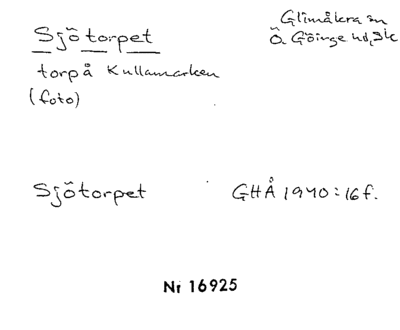 Sjötorpet
Glimåkra sn
Ö. Göinge hd, Sk
torp å Kullamarken
(foto)
Sjötorpet GHÅ 1940:16f.
Nr 16925